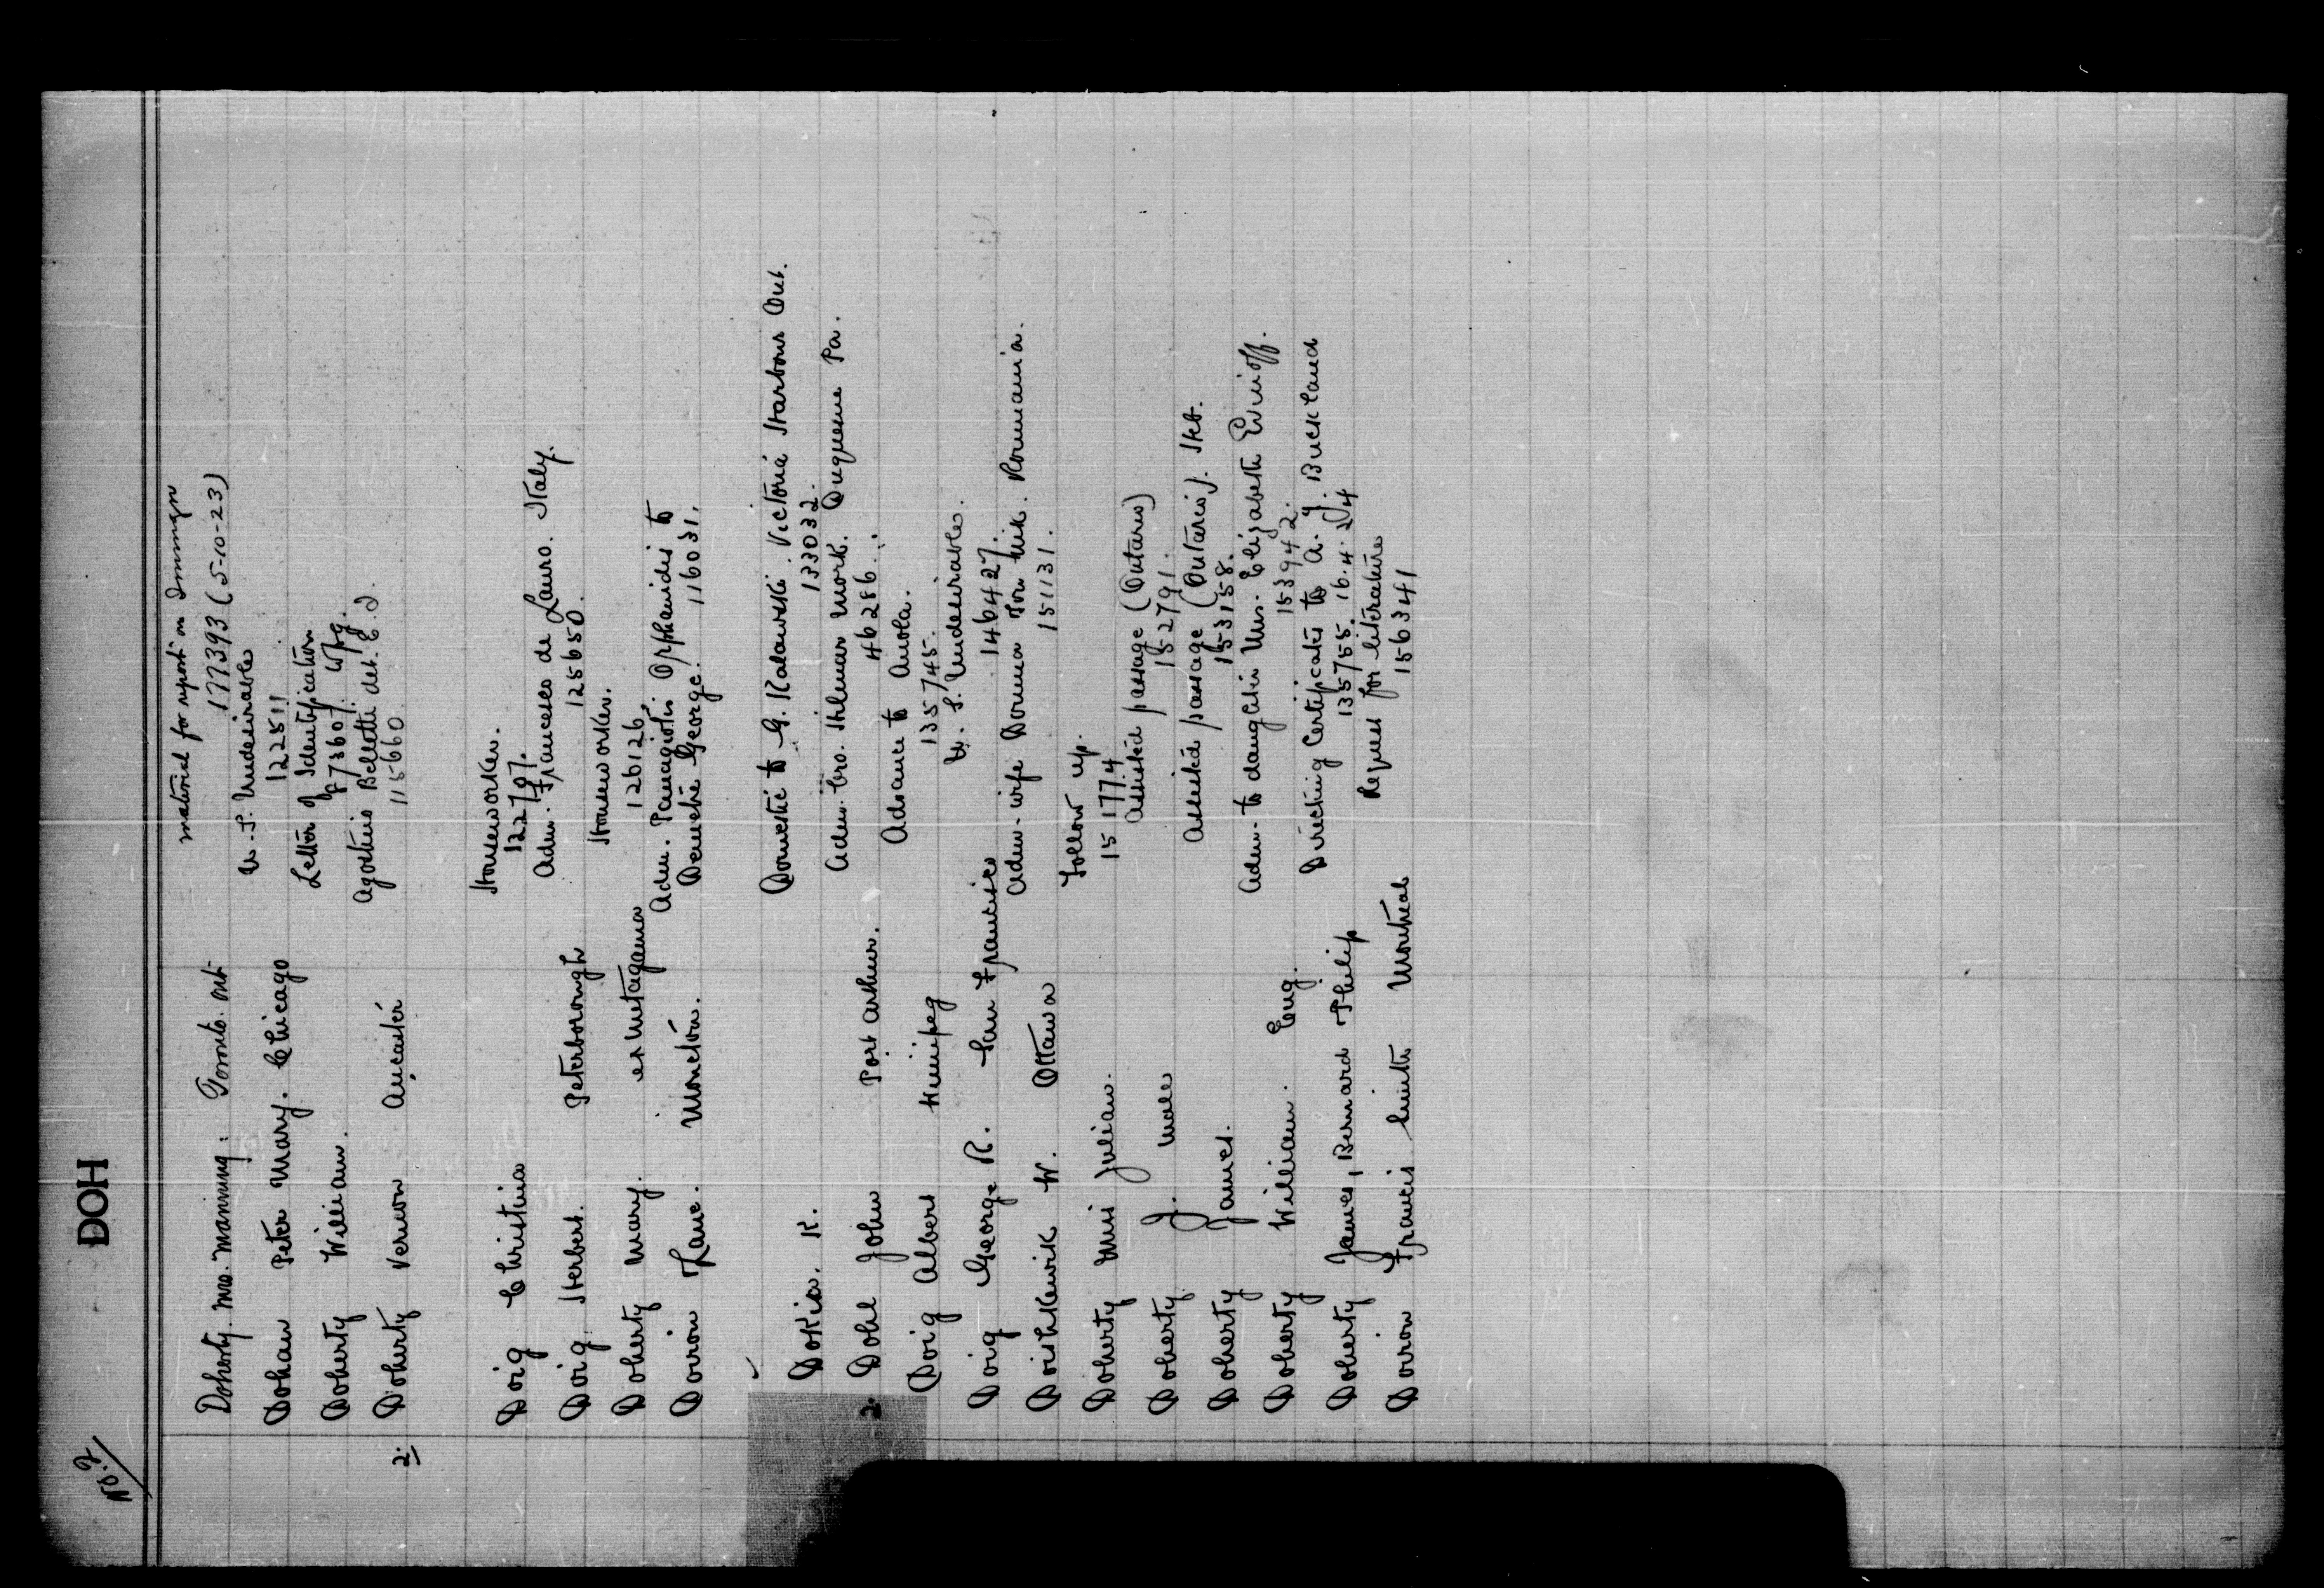 No. 2
DOH
Doherty. Mrs. Manning: Toronto. Ont material for report on Immigr
177393 (5-10-23)
Dohan Peter Mary. Chicago U.S. Undesirables
122511
Doherty William. Letter of Identification
87360 7. Wpg.
2. Doherty Vernon Ancaster Agostins Belletti det. C.J
115660
Doig Christina Houseworker.
122707.
Doig Herbert. Peterborough Adm. Francesco de Lauro. Italy.
125650.
Doherty Mary. Houseworker.
126126.
Doiron Lane. Moncton. Adm. Panagiotis Orphanides to
Demetre George. 116031.
Dokia. K. Domestic to G. Kalawski. Victoria Harbour Ont.
133032.
2. Dohl John Port Arthur. Adm. bro. Hilmar Mork. Duquesne Pa.
46286.
Doig Albert Winnipeg Advance to Anola.
135745.
Doig George R. San Francisco U.S. Undesirables.
146427.
Doishkewik W. Ottawa Adm-wife Domna Mik. Roumania.
151131.
Doherty Miss Julian. Follow up.
151774
Doherty J. male Assisted passage (Ontario)
152791.
Doherty James. Assisted passage (Ontario). Heb.
153158.
Doherty William. Eng. Adm-to daughter Mrs. Elizabeth Evinoff.
153942.
Doherty James, Bernard Philip Directing Certificates to A. J. Buckland
135755. 16.4.24
Doiron Francis Smith Montreal Request for literature
156341